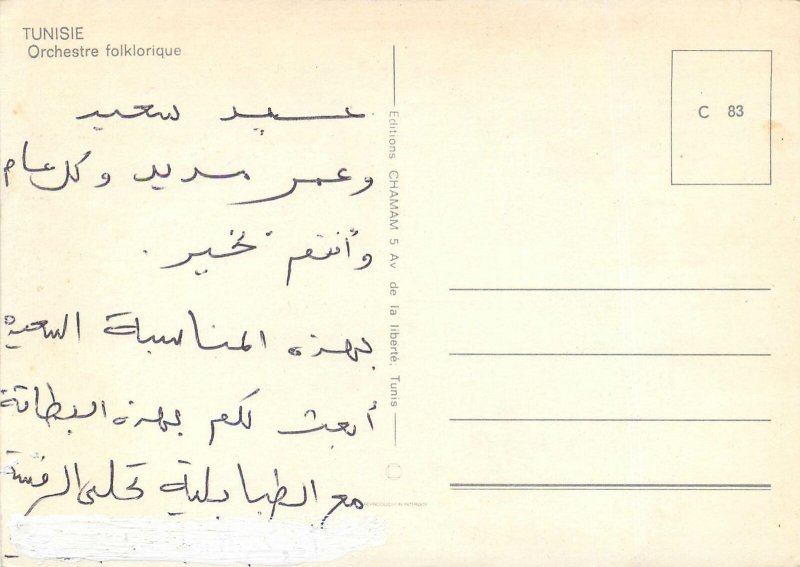 TUNISIE
Orchestre folklorique
C 83
عيد سعيد
وعمر مديد وكل عام
وأنتم بخير .
بهذه المناسبة السعيدة
أبعث لكم بهذه البطاقة
مع الطبابلية تحلى
Editions CHAMAM 5 Av de la liberté. Tunis